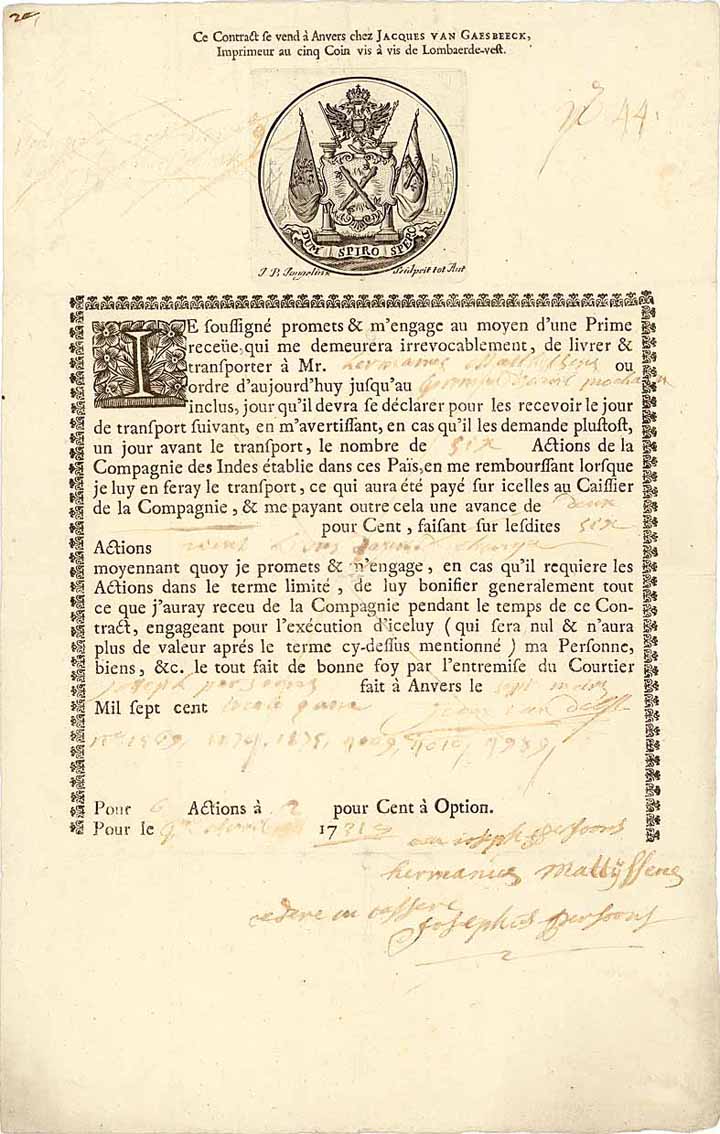 Ce Contract se vend à Anvers chez JACQUES VAN GAESBEECK,
Imprimeur au cinq Coin vis à vis de Lombaerde-vest.
44
DUM SPIRO SPERO
Sculpsit tot Ant
IE soussigné promets & m'engage au moyen d'une Prime
receüe, qui me demeurera irrevocablement, de livrer &
transporter à Mr. hermanus Matthyssens ou
ordre d'aujourd'huy jusqu'au
inclus, jour qu'il devra se déclarer pour les recevoir le jour
de transport suivant, en m'avertissant, en cas qu'il les demande plustost,
un jour avant le transport, le nombre de six Actions de la
Compagnie des Indes établie dans ces Païs, en me rembourssant lorsque
je luy en feray le transport, ce qui aura été payé sur icelles au Caissier
de la Compagnie, & me payant outre cela une avance de deux
pour Cent, faisant sur lesdites six
Actions
moyennant quoy je promets & m'engage, en cas qu'il requiere les
Actions dans le terme limité, de luy bonifier generalement tout
ce que j'auray receu de la Compagnie pendant le temps de ce Con-
tract, engageant pour l'exécution d'iceluy ( qui sera nul & n'aura
plus de valeur aprés le terme cy-dessus mentionné ) ma Personne,
biens, &c. le tout fait de bonne foy par l'entremise du Courtier
joseph persoons fait à Anvers le sept
Mil sept cent
Pour 6 Actions à 2 pour Cent à Option.
Pour le 17
hermanus Mattÿssens
Josephus Persoons
2